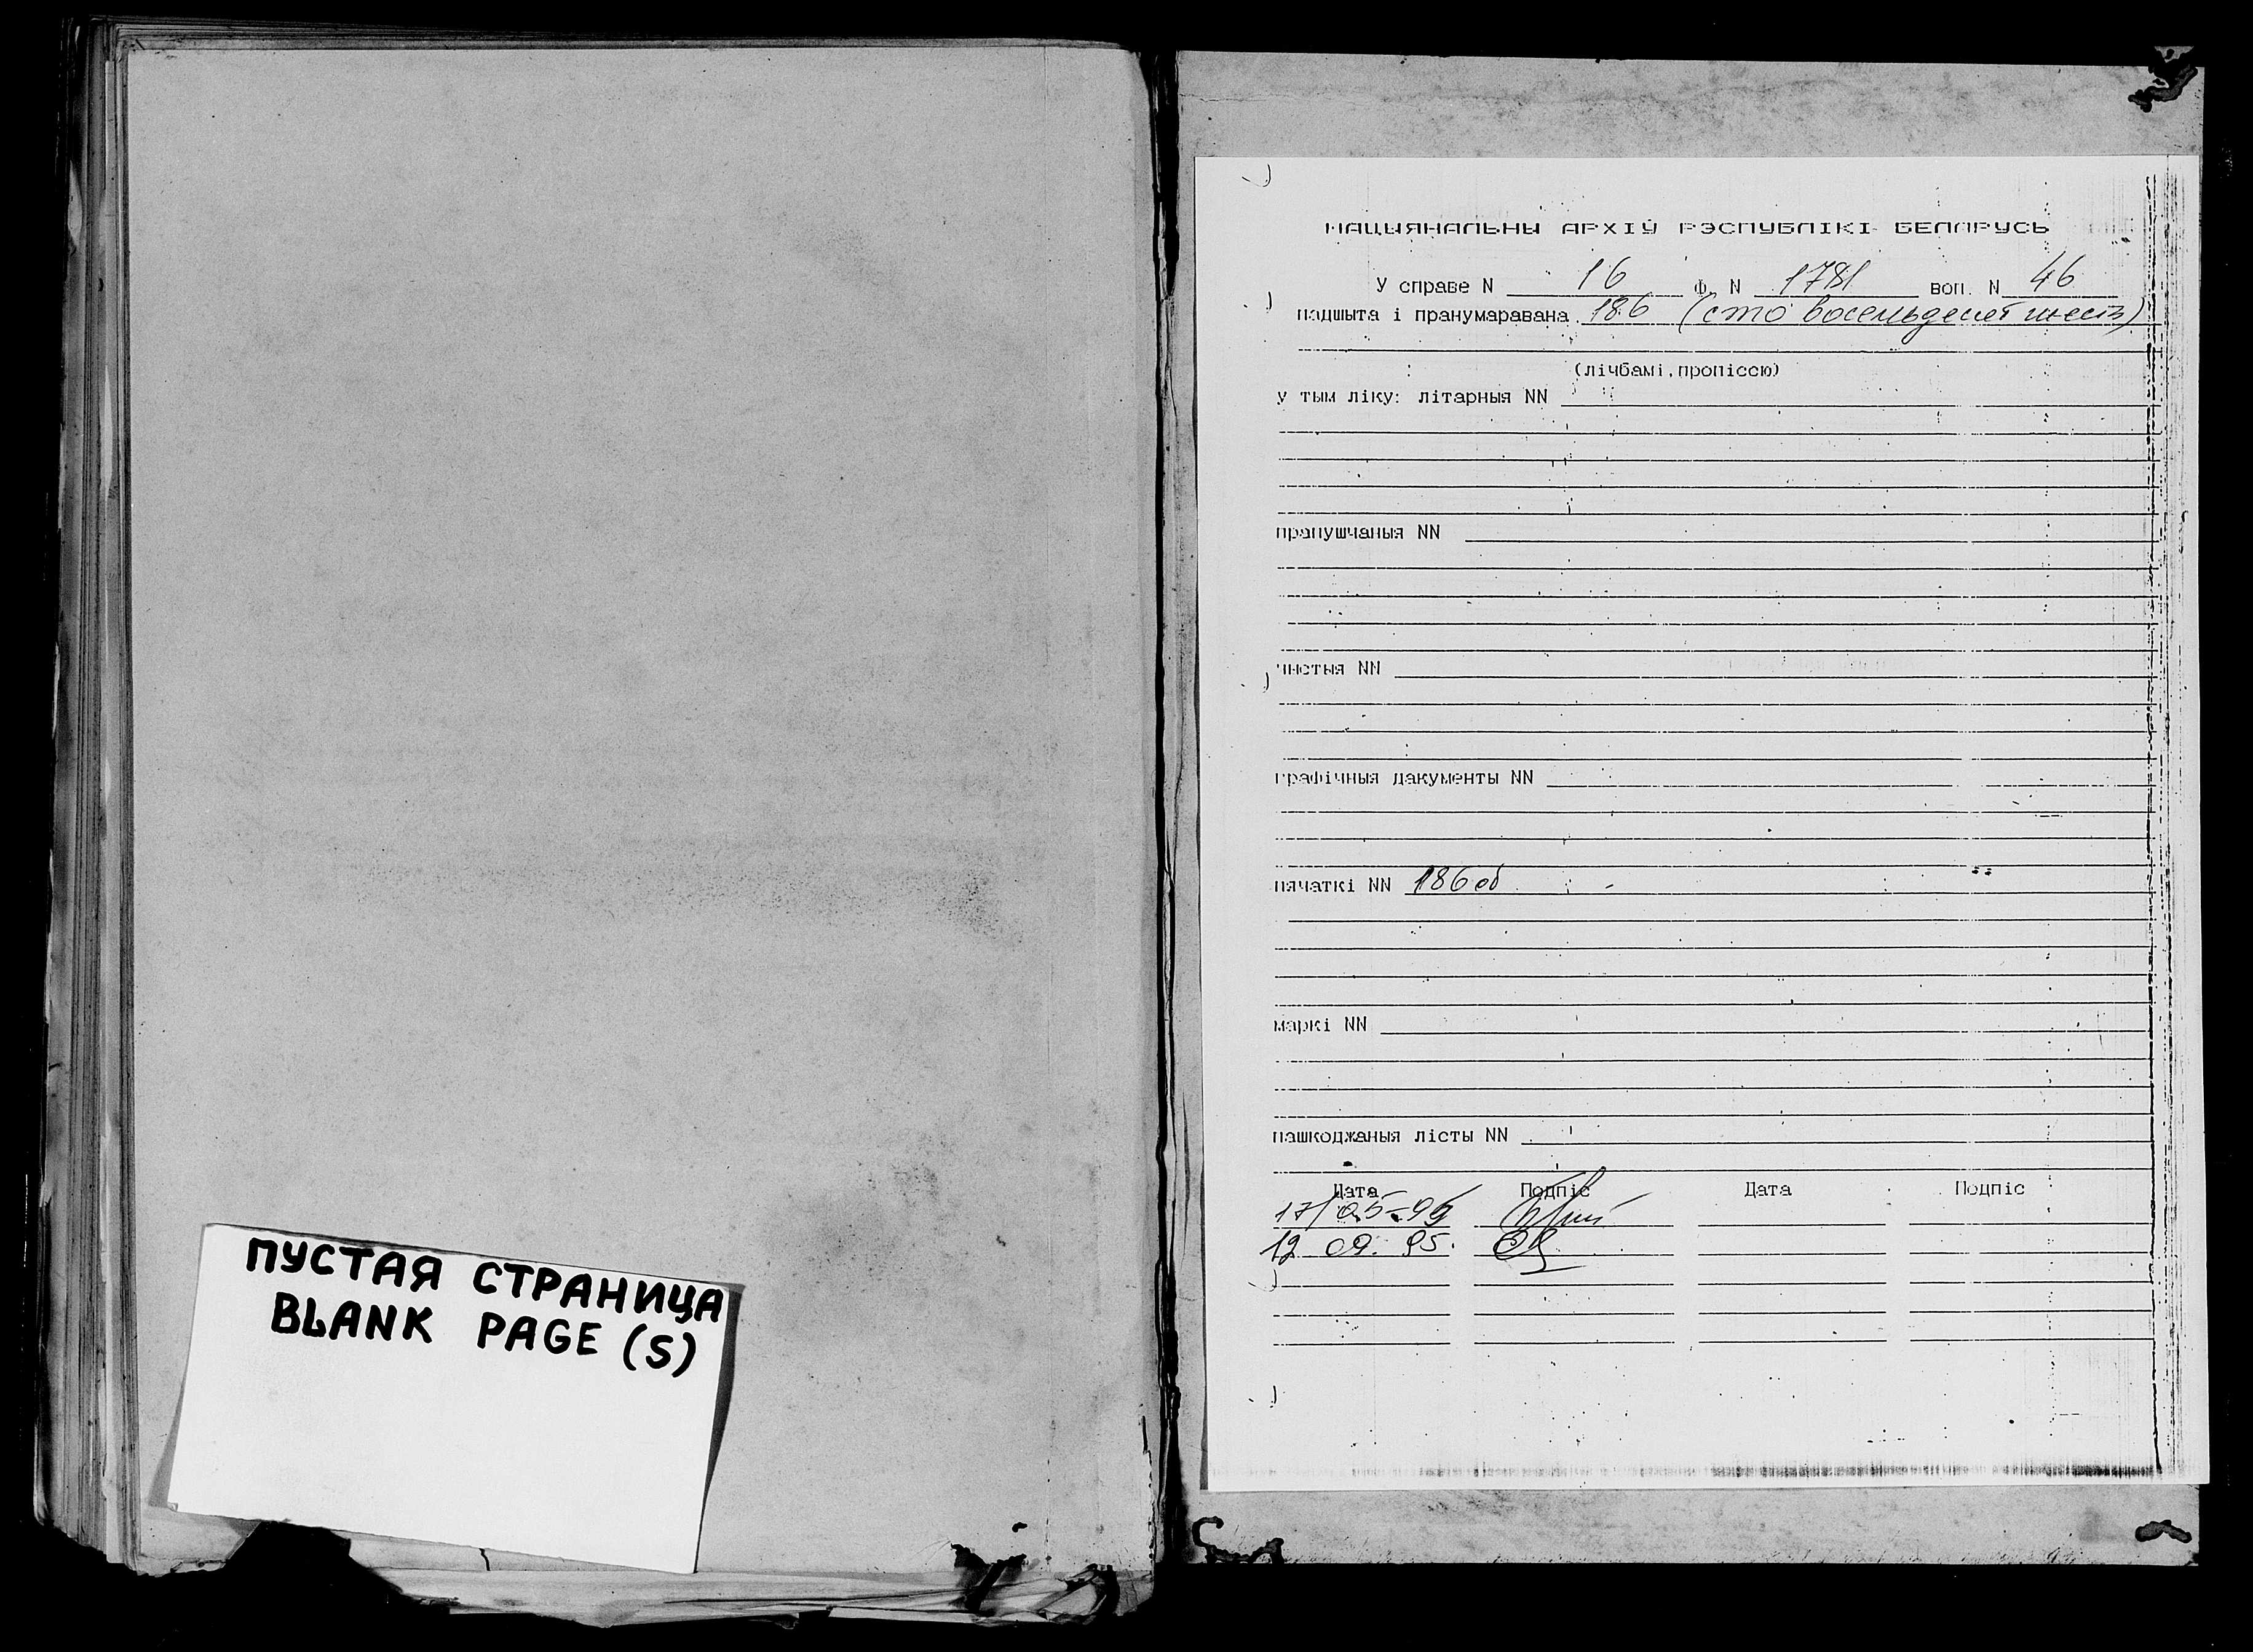 ПУСТАЯ СТРАНИЦА
BLANK PAGE (S)
НАЦЫЯНАЛЬНЫ АРХІЎ РЭСПУБЛІКІ БЕЛАРУСЬ
У справе N 16 Ф. N 1781 воп. N 46
падшыта і пранумаравана 186 (сто восемьдесят шесть)
(лічбамі, пропіссю)
у тым ліку: літарныя NN
прапушчаныя NN
чыстыя NN
графічныя дакументы NN
пячаткі NN 186 об
маркі NN
пашкоджаныя лісты NN
Дата Подпіс Дата Подпіс
17/05-95
12 09. 95.